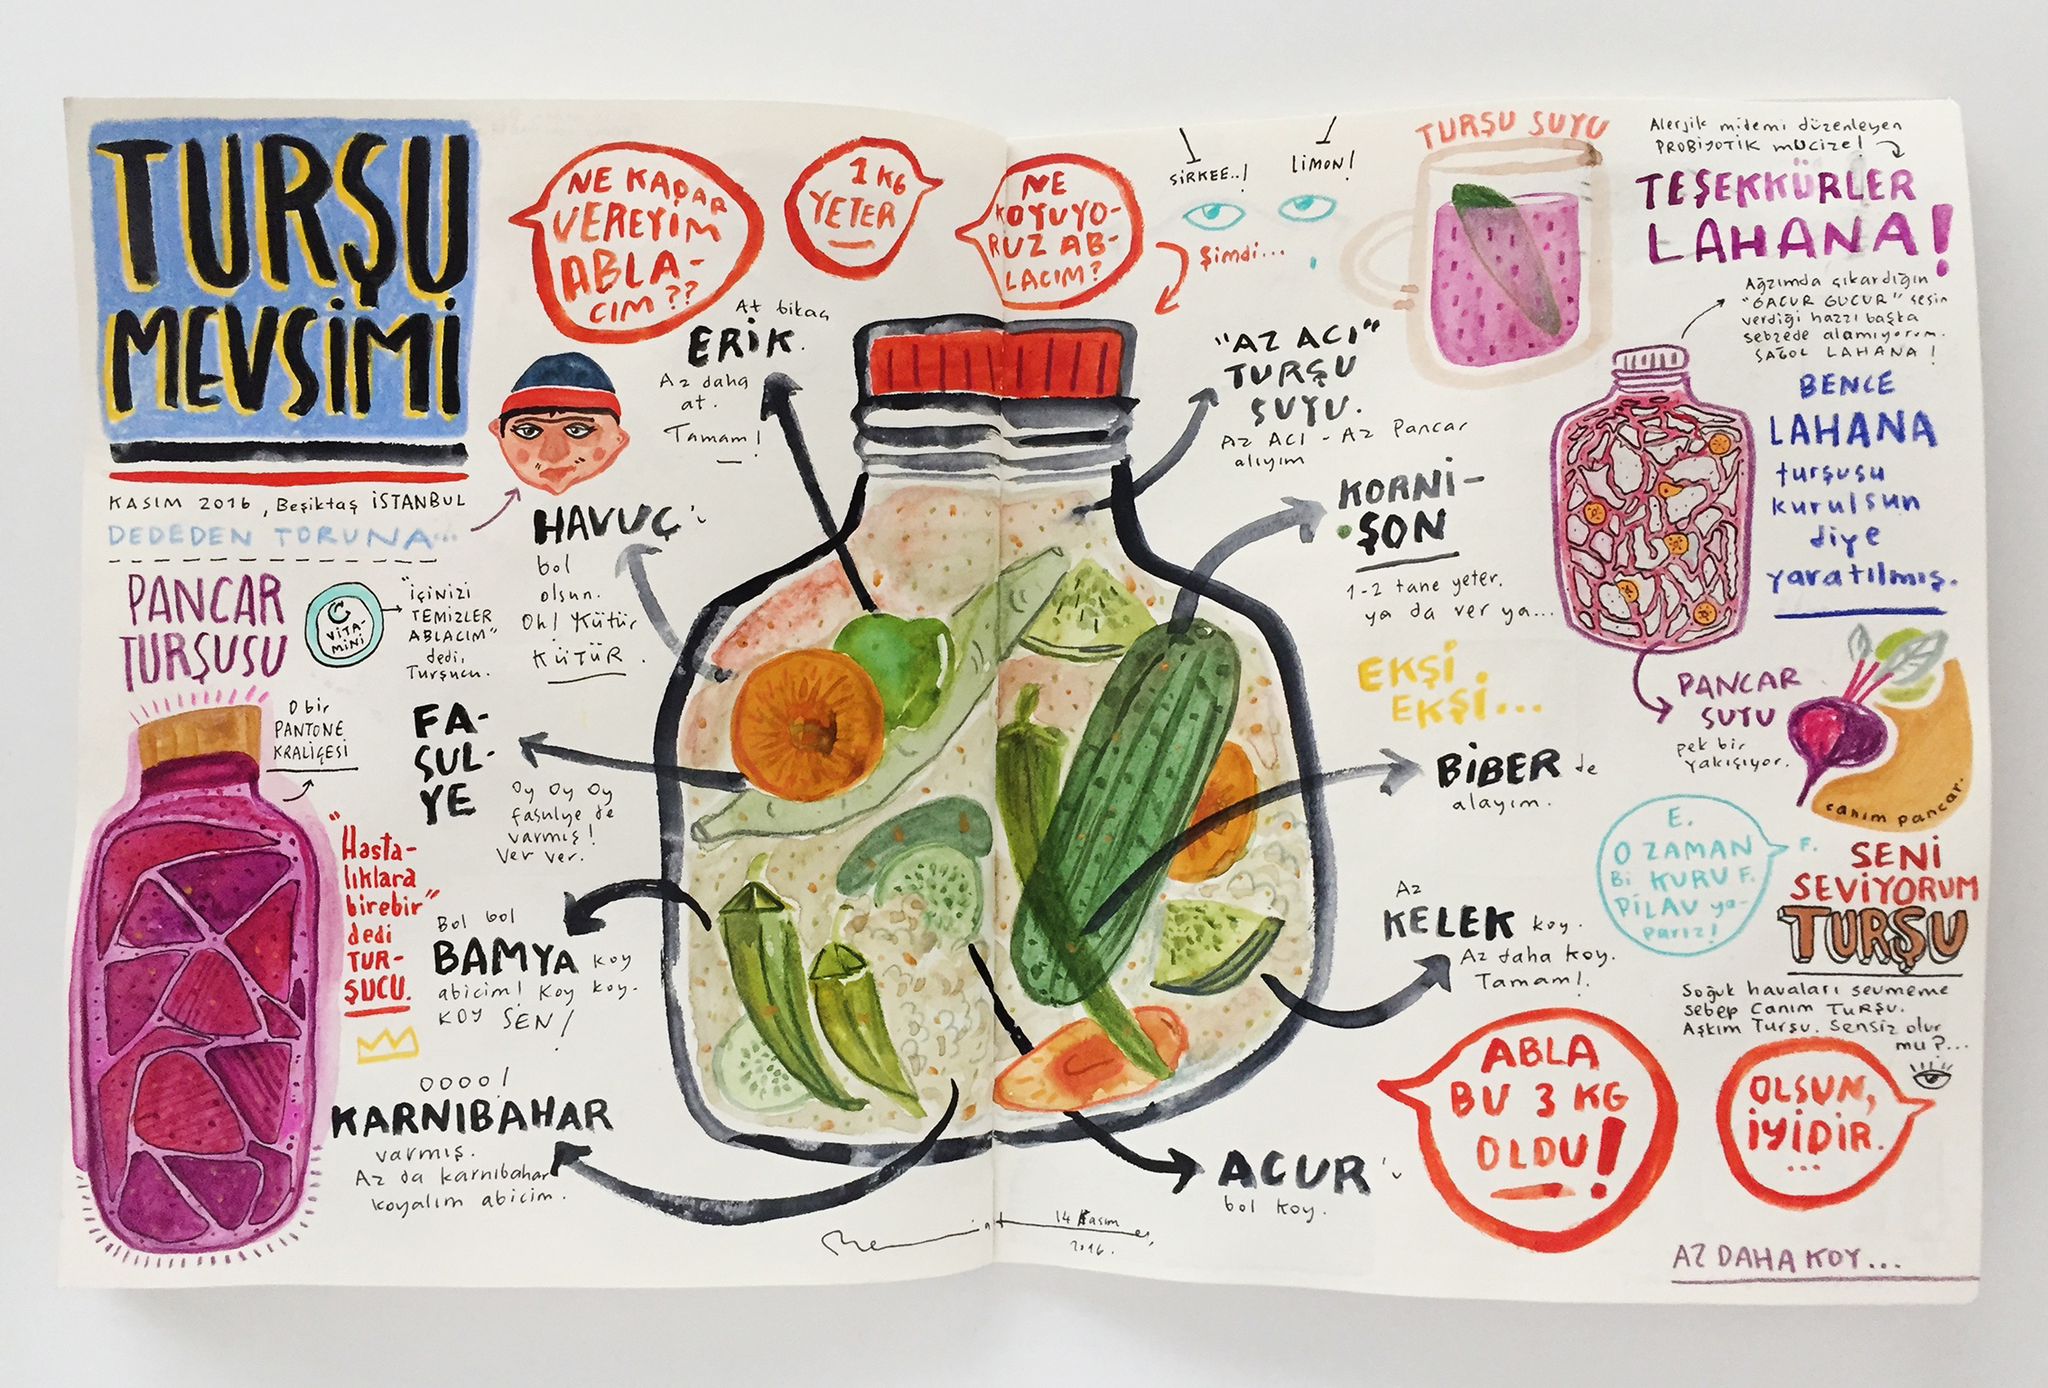 TURŞU
MEVSİMİ
KASIM 2016, Beşiktaş İSTANBUL
DEDEDEN TORUNA...
PANCAR
TURŞUSU
C
VİTA-
MİNİ
"İÇİNİZİ
TEMİZLER
ABLACIM"
dedi,
Turşucu.
O bir
PANTONE
KRALİÇESİ
"Hasta-
lıklara
birebir"
dedi
TUR-
ŞUCU.
NE KADAR
VEREYİM
ABLA-
CIM??
1 KG
YETER
NE
KOYUYO-
RUZ AB-
LACIM?
Şimdi...
SİRKEE..!
LİMON!
At bikaç
ERİK.
Az daha
at.
Tamam!
HAVUÇ'u
bol
olsun.
Oh! Kütür
KÜTÜR.
FA-
SUL-
YE
Oy Oy Oy
fasulye de
varmış!
Ver ver.
Bol bol
BAMYA koy
abicim! Koy koy.
KOY SEN!
OOOO!
KARNIBAHAR
varmış.
Az da karnıbahar
koyalım abicim.
"AZ ACI"
TURŞU
SUYU.
Az ACI - Az Pancar
alıyım
KORNİ-
ŞON
1-2 tane yeter.
ya da ver ya...
EKŞİ
EKŞİ...
BİBER de
alayım.
Az
KELEK koy.
Az daha koy.
Tamam!
ACUR'u
bol koy.
14 Kasım
2016.
TURŞU SUYU
Alerjik midemi düzenleyen
PROBİYOTİK mucize!
TEŞEKKÜRLER
LAHANA!
Ağzımda çıkardığın
"GACUR GUCUR" sesin
verdiği hazzı başka
sebzede alamıyorum.
SAĞOL LAHANA!
BENCE
LAHANA
turşusu
kurulsun
diye
yaratılmış.
PANCAR
SUYU
pek bir
yakışıyor.
canım pancar.
E.
O ZAMAN
Bİ KURU F.
PİLAV ya-
parız!
F.
SENİ
SEVİYORUM
TURŞU
Soğuk havaları sevmeme
sebep Canım TURŞU.
Aşkım Turşu. Sensiz olur
mu?...
ABLA
BU 3 KG
OLDU!
OLSUN,
İYİDİR.
...
AZ DAHA KOY...